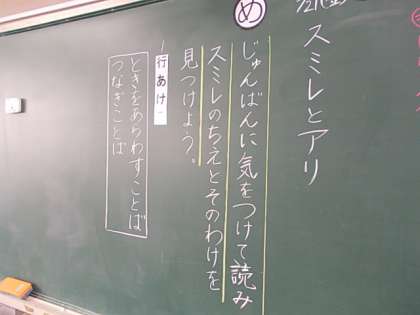 スミレとアリ
め
じゅんばんに気をつけて読み
スミレのちえとそのわけを
見つけよう。
行あけ
ときをあらわすことば
つなぎことば